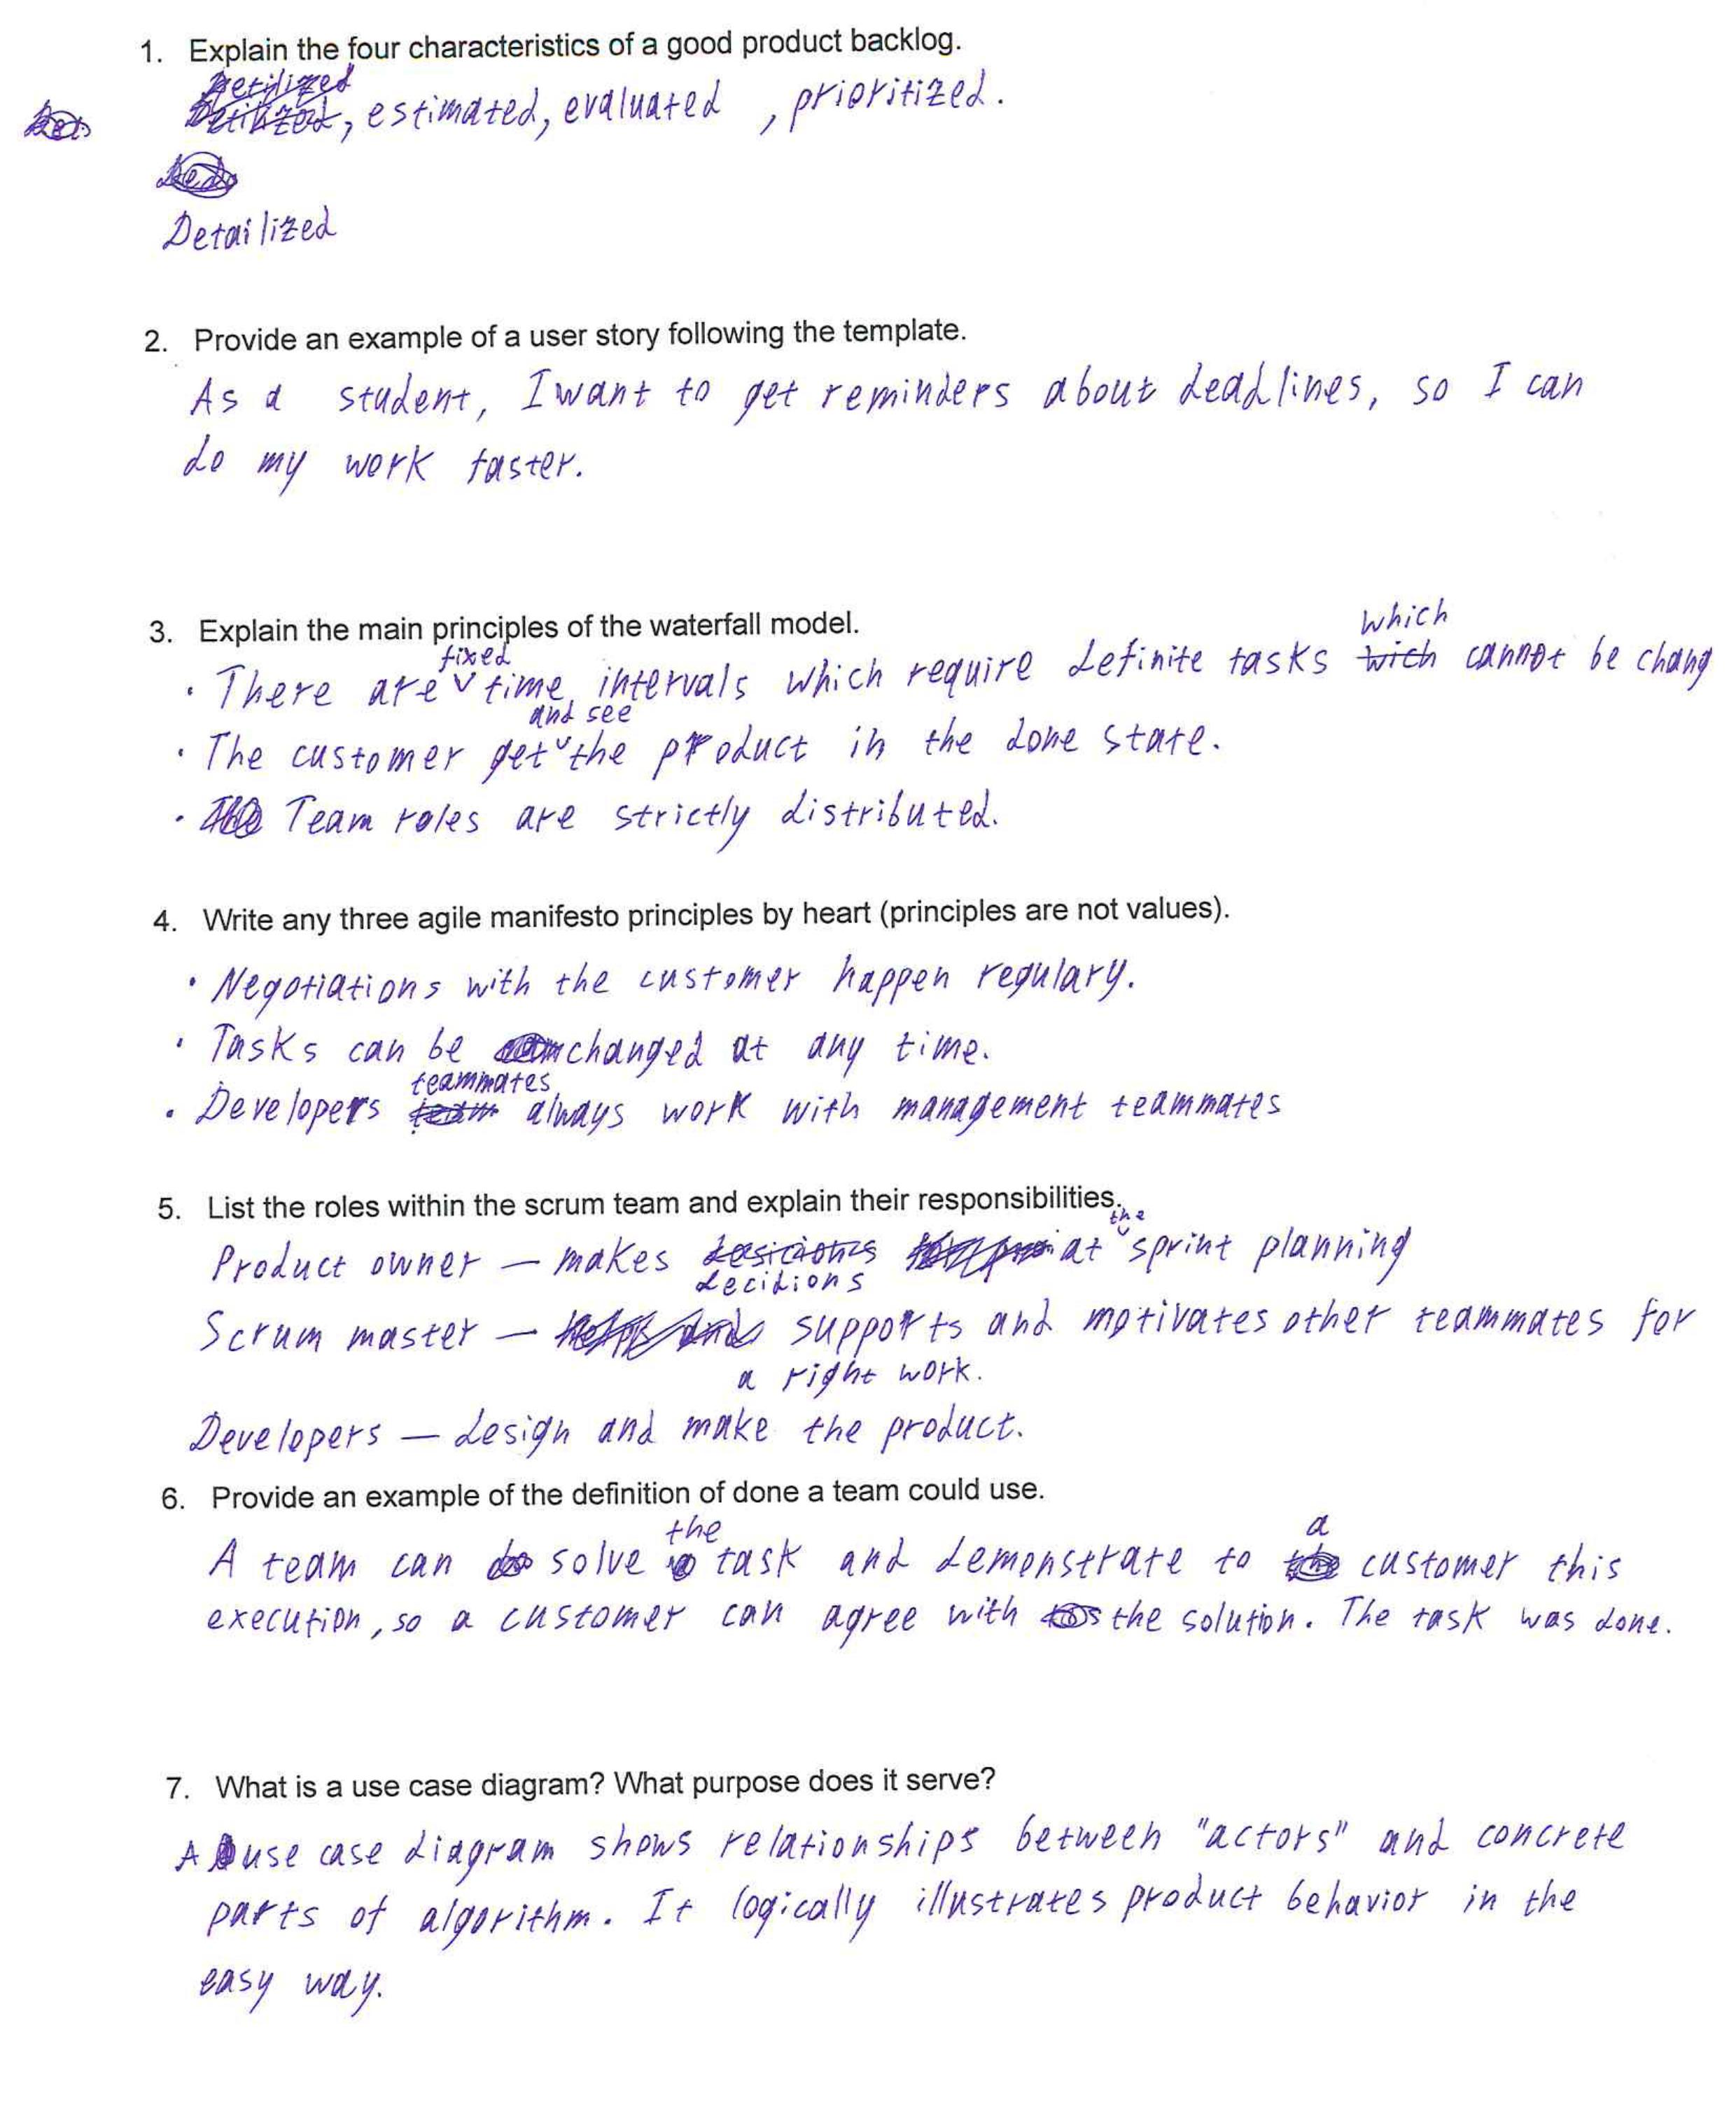 1. Explain the four characteristics of a good product backlog.
Detilized
Detilized, estimated, evaluated , prioritized.
Detailized
2. Provide an example of a user story following the template.
As a student, I want to get reminders about deadlines, so I can
do my work faster.
3. Explain the main principles of the waterfall model.
which
fixed
• There are ˅ time intervals which require definite tasks wich cannot be chang
and see
• The customer get ˅ the product in the done state.
• Team roles are strictly distributed.
4. Write any three agile manifesto principles by heart (principles are not values).
• Negotiations with the customer happen regulary.
• Tasks can be changed at any time.
teammates
• Developers team always work with management teammates
5. List the roles within the scrum team and explain their responsibilities.
the
Product owner – makes desicions at ˅ sprint planning
decidions
Scrum master – helps and supports and motivates other teammates for
a right work.
Developers – design and make the product.
6. Provide an example of the definition of done a team could use.
the a
A team can do solve task and demonstrate to the customer this
execution, so a customer can agree with the solution. The task was done.
7. What is a use case diagram? What purpose does it serve?
A use case diagram shows relationships between "actors" and concrete
parts of algorithm. It logically illustrates product behavior in the
easy way.